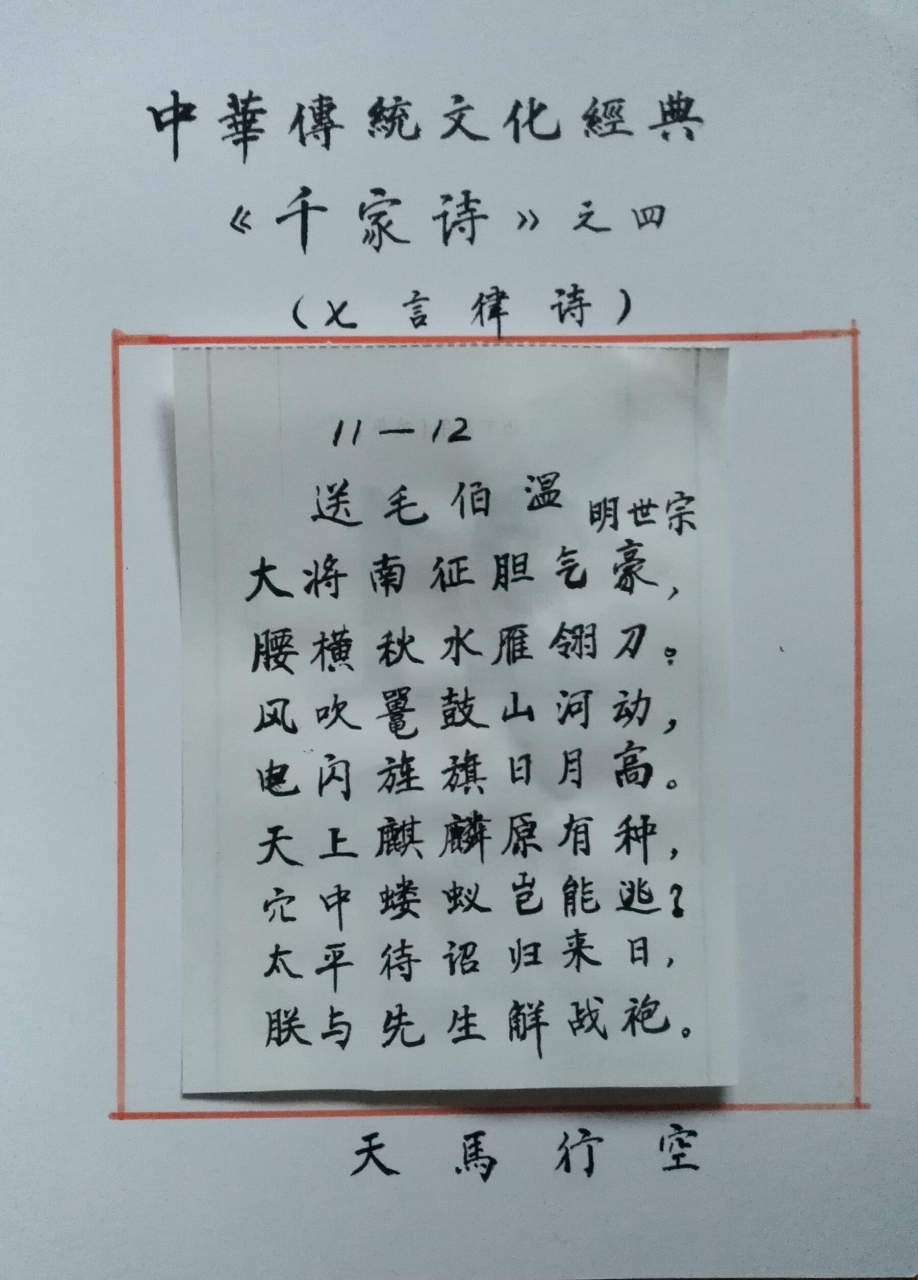 中華傳統文化經典
《千家诗》之四
(七言律诗)
11—12
送毛伯温 明世宗
大将南征胆气豪，
腰横秋水雁翎刀。
风吹鼍鼓山河动，
电闪旌旗日月高。
天上麒麟原有种，
穴中蝼蚁岂能逃？
太平待诏归来日，
朕与先生解战袍。
天馬行空